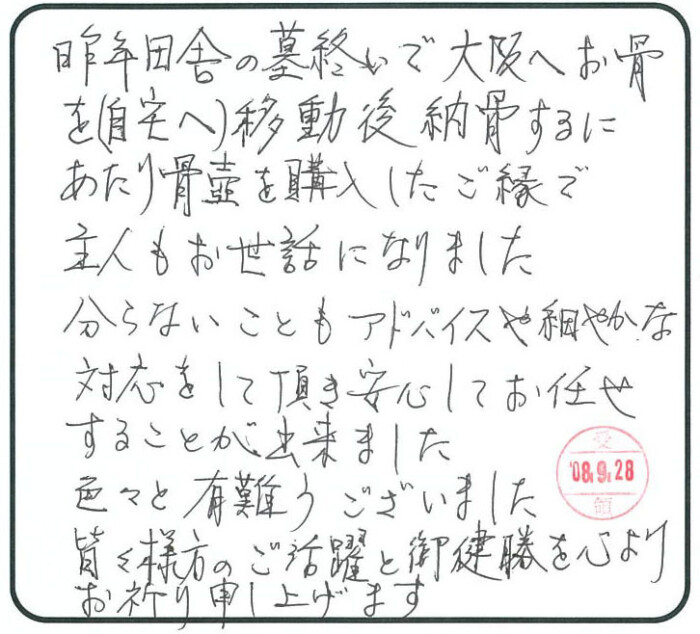 昨年田舎の墓終いで大阪へお骨
を(自宅へ)移動後納骨するに
あたり骨壺を購入したご縁で
主人もお世話になりました
分らないこともアドバイスや細やかな
対応をして頂き安心してお任せ
することが出来ました
受
'08.9.28
領
色々と有難うございました
皆々様方のご活躍と御健勝を心より
お祈り申し上げます